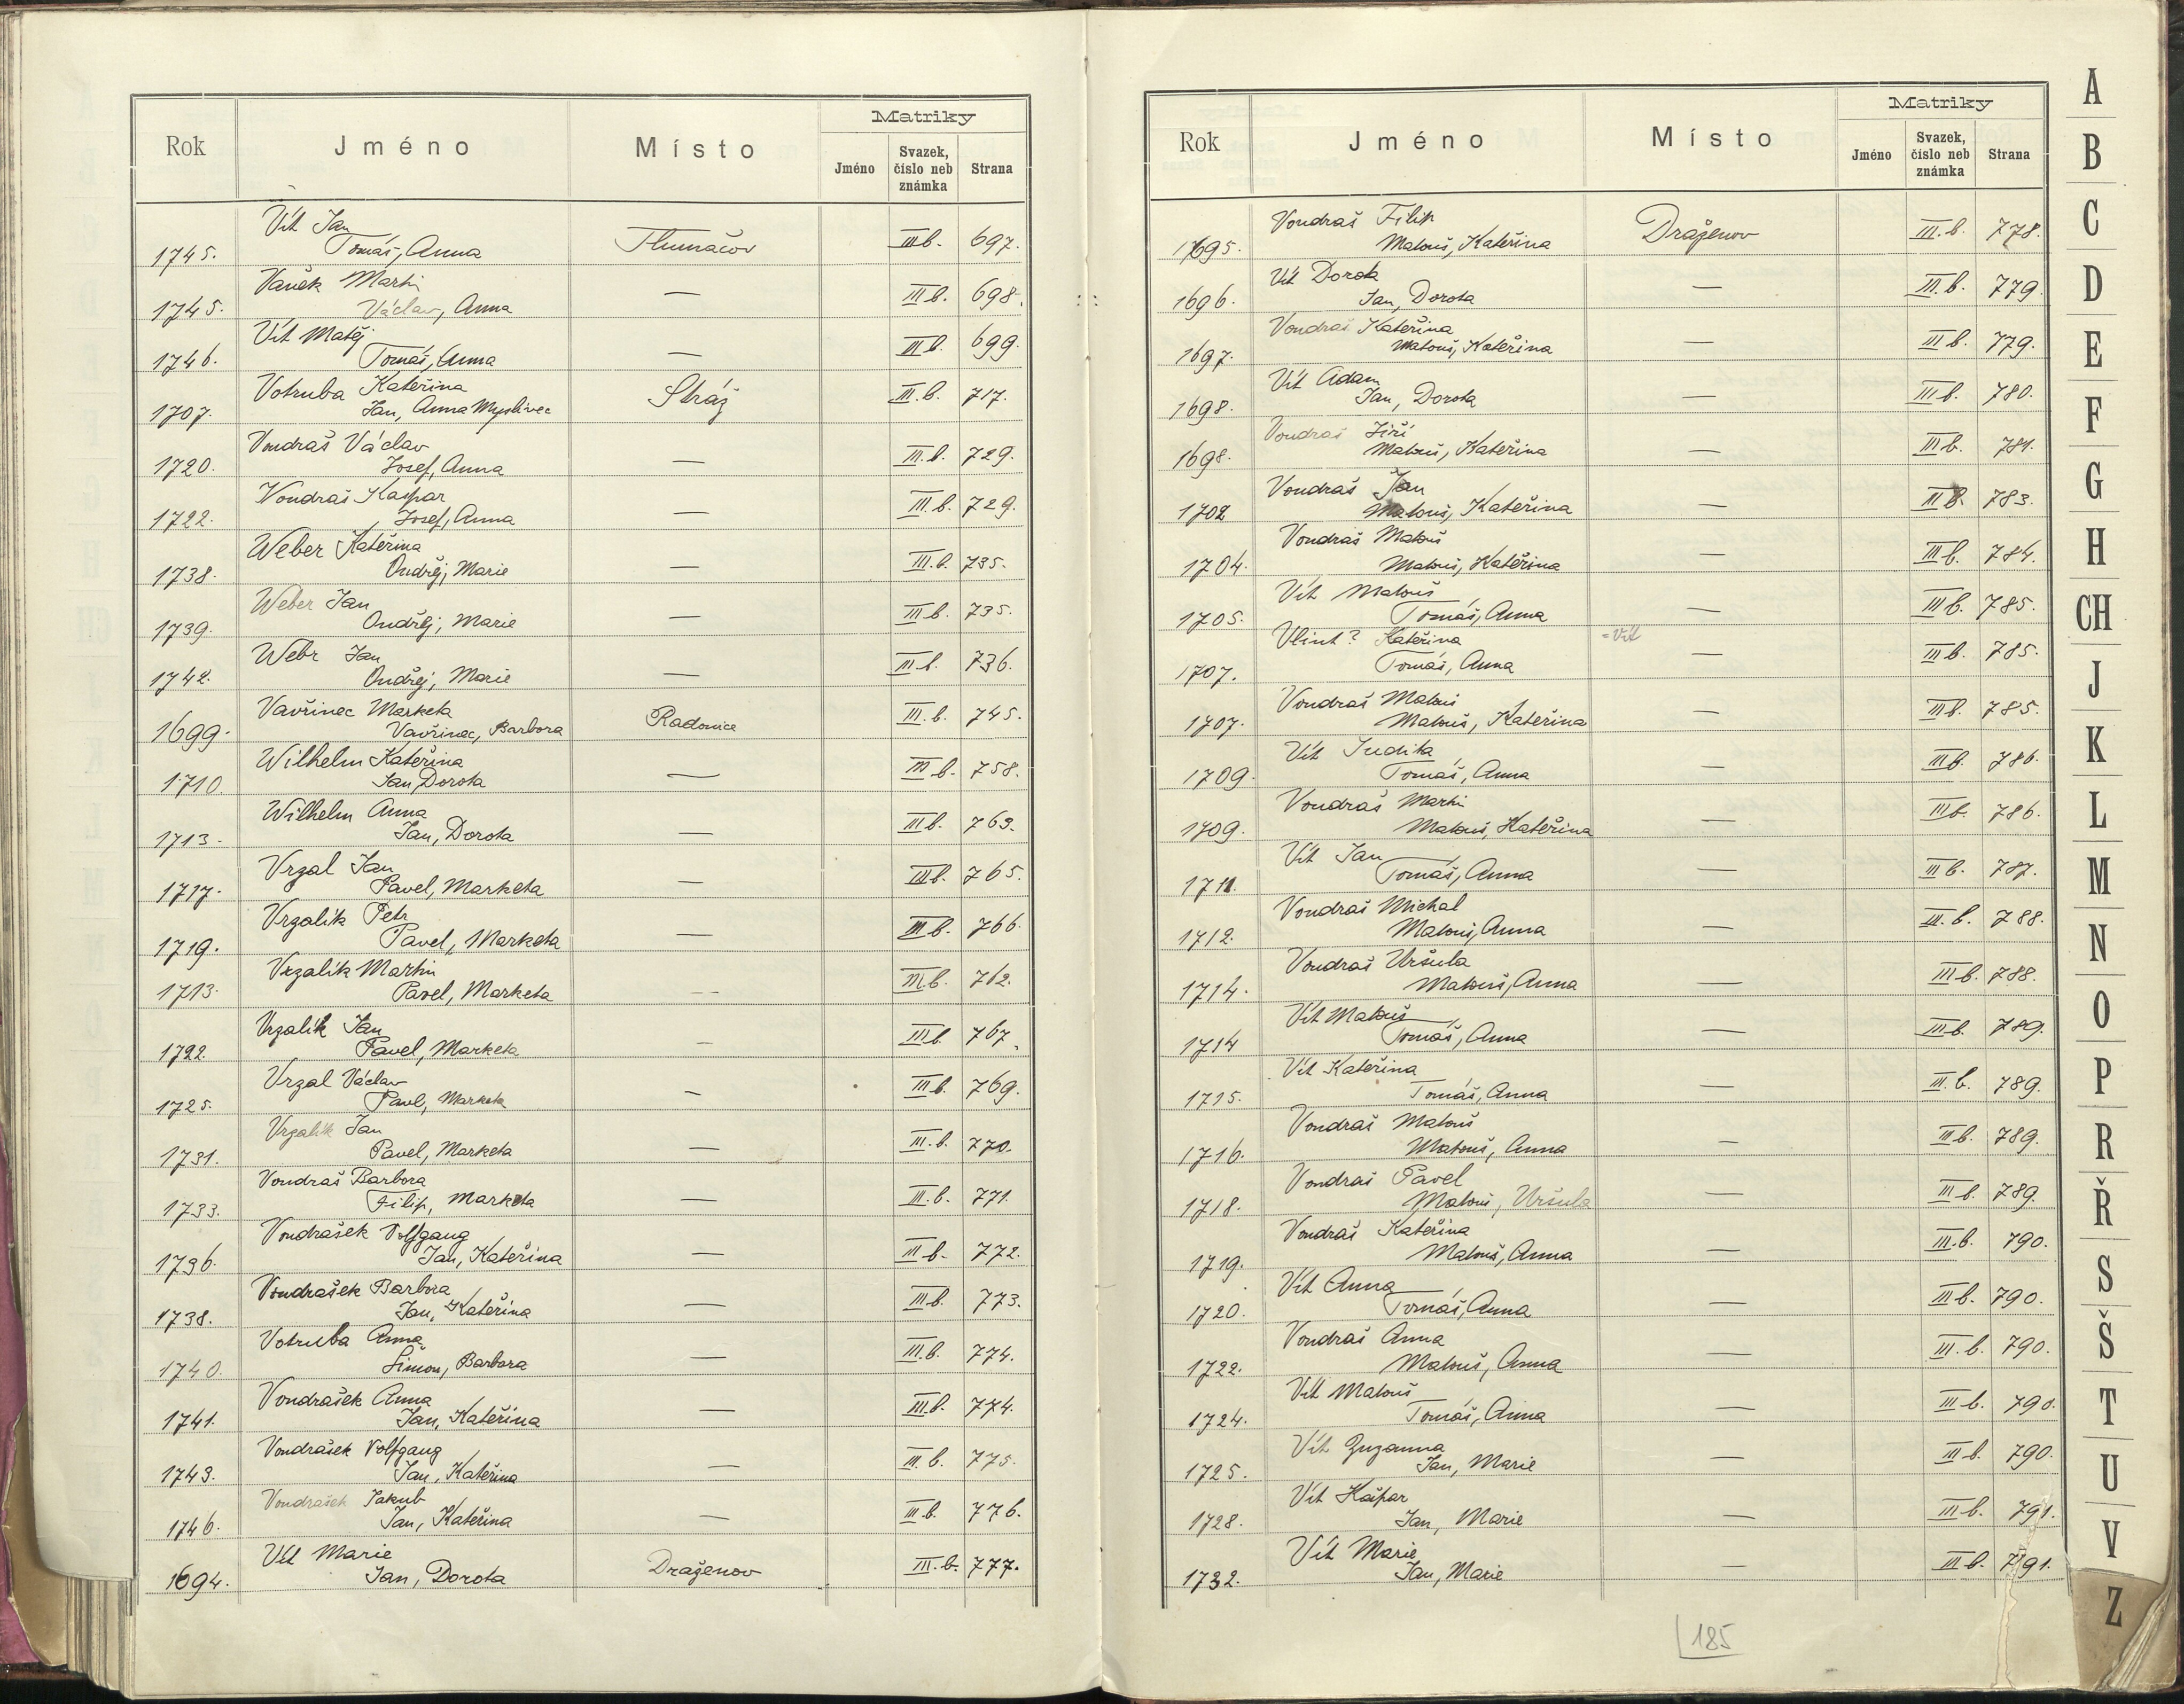 Rok Jméno Místo Matriky
Jméno Svazek, číslo neb známka Strana
Vít Jan
1745. Tomáš, Anna Tlumačov III b. 697.
Vaněk Martin
1745. Václav, Anna — III b. 698.
Vít Matěj
1746. Tomáš, Anna — III b. 699.
Votruba Kateřina
1707. Jan, Anna Myslivec Stráž III. b. 717.
Vondraš Václav
1720. Josef, Anna — III. b. 729.
Vondraš Kašpar
1722. Josef, Anna — III. b. 729.
Weber Kateřina
1738. Ondřej, Marie — III. b. 735.
Weber Jan
1739. Ondřej, Marie — III b. 735.
Webr Jan
1742. Ondřej, Marie — III b. 736.
Vavřinec Marketa
1699. Vavřinec, Barbora Radonice III. b. 745.
Wilhelm Kateřina
1710. Jan, Dorota — III b. 758.
Wilhelm Anna
1713. Jan, Dorota — III b. 763.
Vrzal Jan
1717. Pavel, Marketa — III b. 765.
Vrzalík Petr
1719. Pavel, Marketa — III b. 766.
Vrzalík Martin
1713. Pavel, Marketa — III. b. 762.
Vrzalík Jan
1722. Pavel, Marketa — III b. 767.
Vrzal Václav
1725. Pavl, Marketa — III b. 769.
Vrzalík Jan
1731. Pavel, Marketa — III. b. 770.
Vondraš Barbora
1733. Filip, Marketa — III. b. 771.
Vondrašek Volfgang
1736. Jan, Kateřina — III b. 772.
Vondrašek Barbora
1738. Jan, Kateřina — III b. 773.
Votruba Anna
1740. Šimon, Barbora — III. b. 774.
Vondrašek Anna
1741. Jan, Kateřina — III b. 774.
Vondrašek Volfgang
1743. Jan, Kateřina — III. b. 775.
Vondrašek Jakub
1746. Jan, Kateřina — III b. 776.
Vít Marie
1694. Jan, Dorota Draženov III. b. 777.
Rok Jméno Místo Matriky
Jméno Svazek, číslo neb známka Strana
Vondraš Filip
1695. Matouš, Kateřina Draženov III. b. 778.
Vít Dorota
1696. Jan, Dorota — III. b. 779.
Vondraš Kateřina
1697. Matouš, Kateřina — III b. 779.
Vít Adam
1698. Jan, Dorota — III b. 780.
Vondraš Jiří
1698. Matouš, Kateřina — III b. 781.
Vondraš Jan
1702 Matouš, Kateřina — III b. 783.
Vondraš Matouš
1704. Matouš, Kateřina — III b. 784.
Vít Matouš
1705. Tomáš, Anna — III b. 785.
Vlint? Kateřina =Vít
1707. Tomáš, Anna — III b. 785.
Vondraš Matouš
1707. Matouš, Kateřina — III b. 785.
Vít Judita
1709. Tomáš, Anna — III b. 786.
Vondraš Martin
1709. Matouš, Kateřina — III b. 786.
Vít Jan
1711. Tomáš, Anna — III b. 787.
Vondraš Michal
1712. Matouš, Anna — III. b. 788.
Vondraš Uršula
1714. Matouš, Anna — III b. 788.
Vít Matouš
1714 Tomáš, Anna — III b. 789.
Vít Kateřina
1715. Tomáš, Anna — III. b. 789.
Vondraš Matouš
1716. Matouš, Anna — III b. 789.
Vondraš Pavel
1718. Matouš, Uršula — III b. 789.
Vondraš Kateřina
1719. Matouš, Anna — III. b. 790.
Vít Anna
1720. Tomáš, Anna — III b. 790.
Vondraš Anna
1722. Matouš, Anna — III. b. 790.
Vít Matouš
1724. Tomáš, Anna — III b. 790.
Vít Zuzanna
1725. Jan, Marie — III b. 790.
Vít Kašpar
1728. Jan, Marie — III b. 791.
Vít Marie
1732. Jan, Marie — III b. 791.
185
A
B
C
D
E
F
G
H
CH
J
K
L
M
N
O
P
R
Ř
S
Š
T
U
V
Z